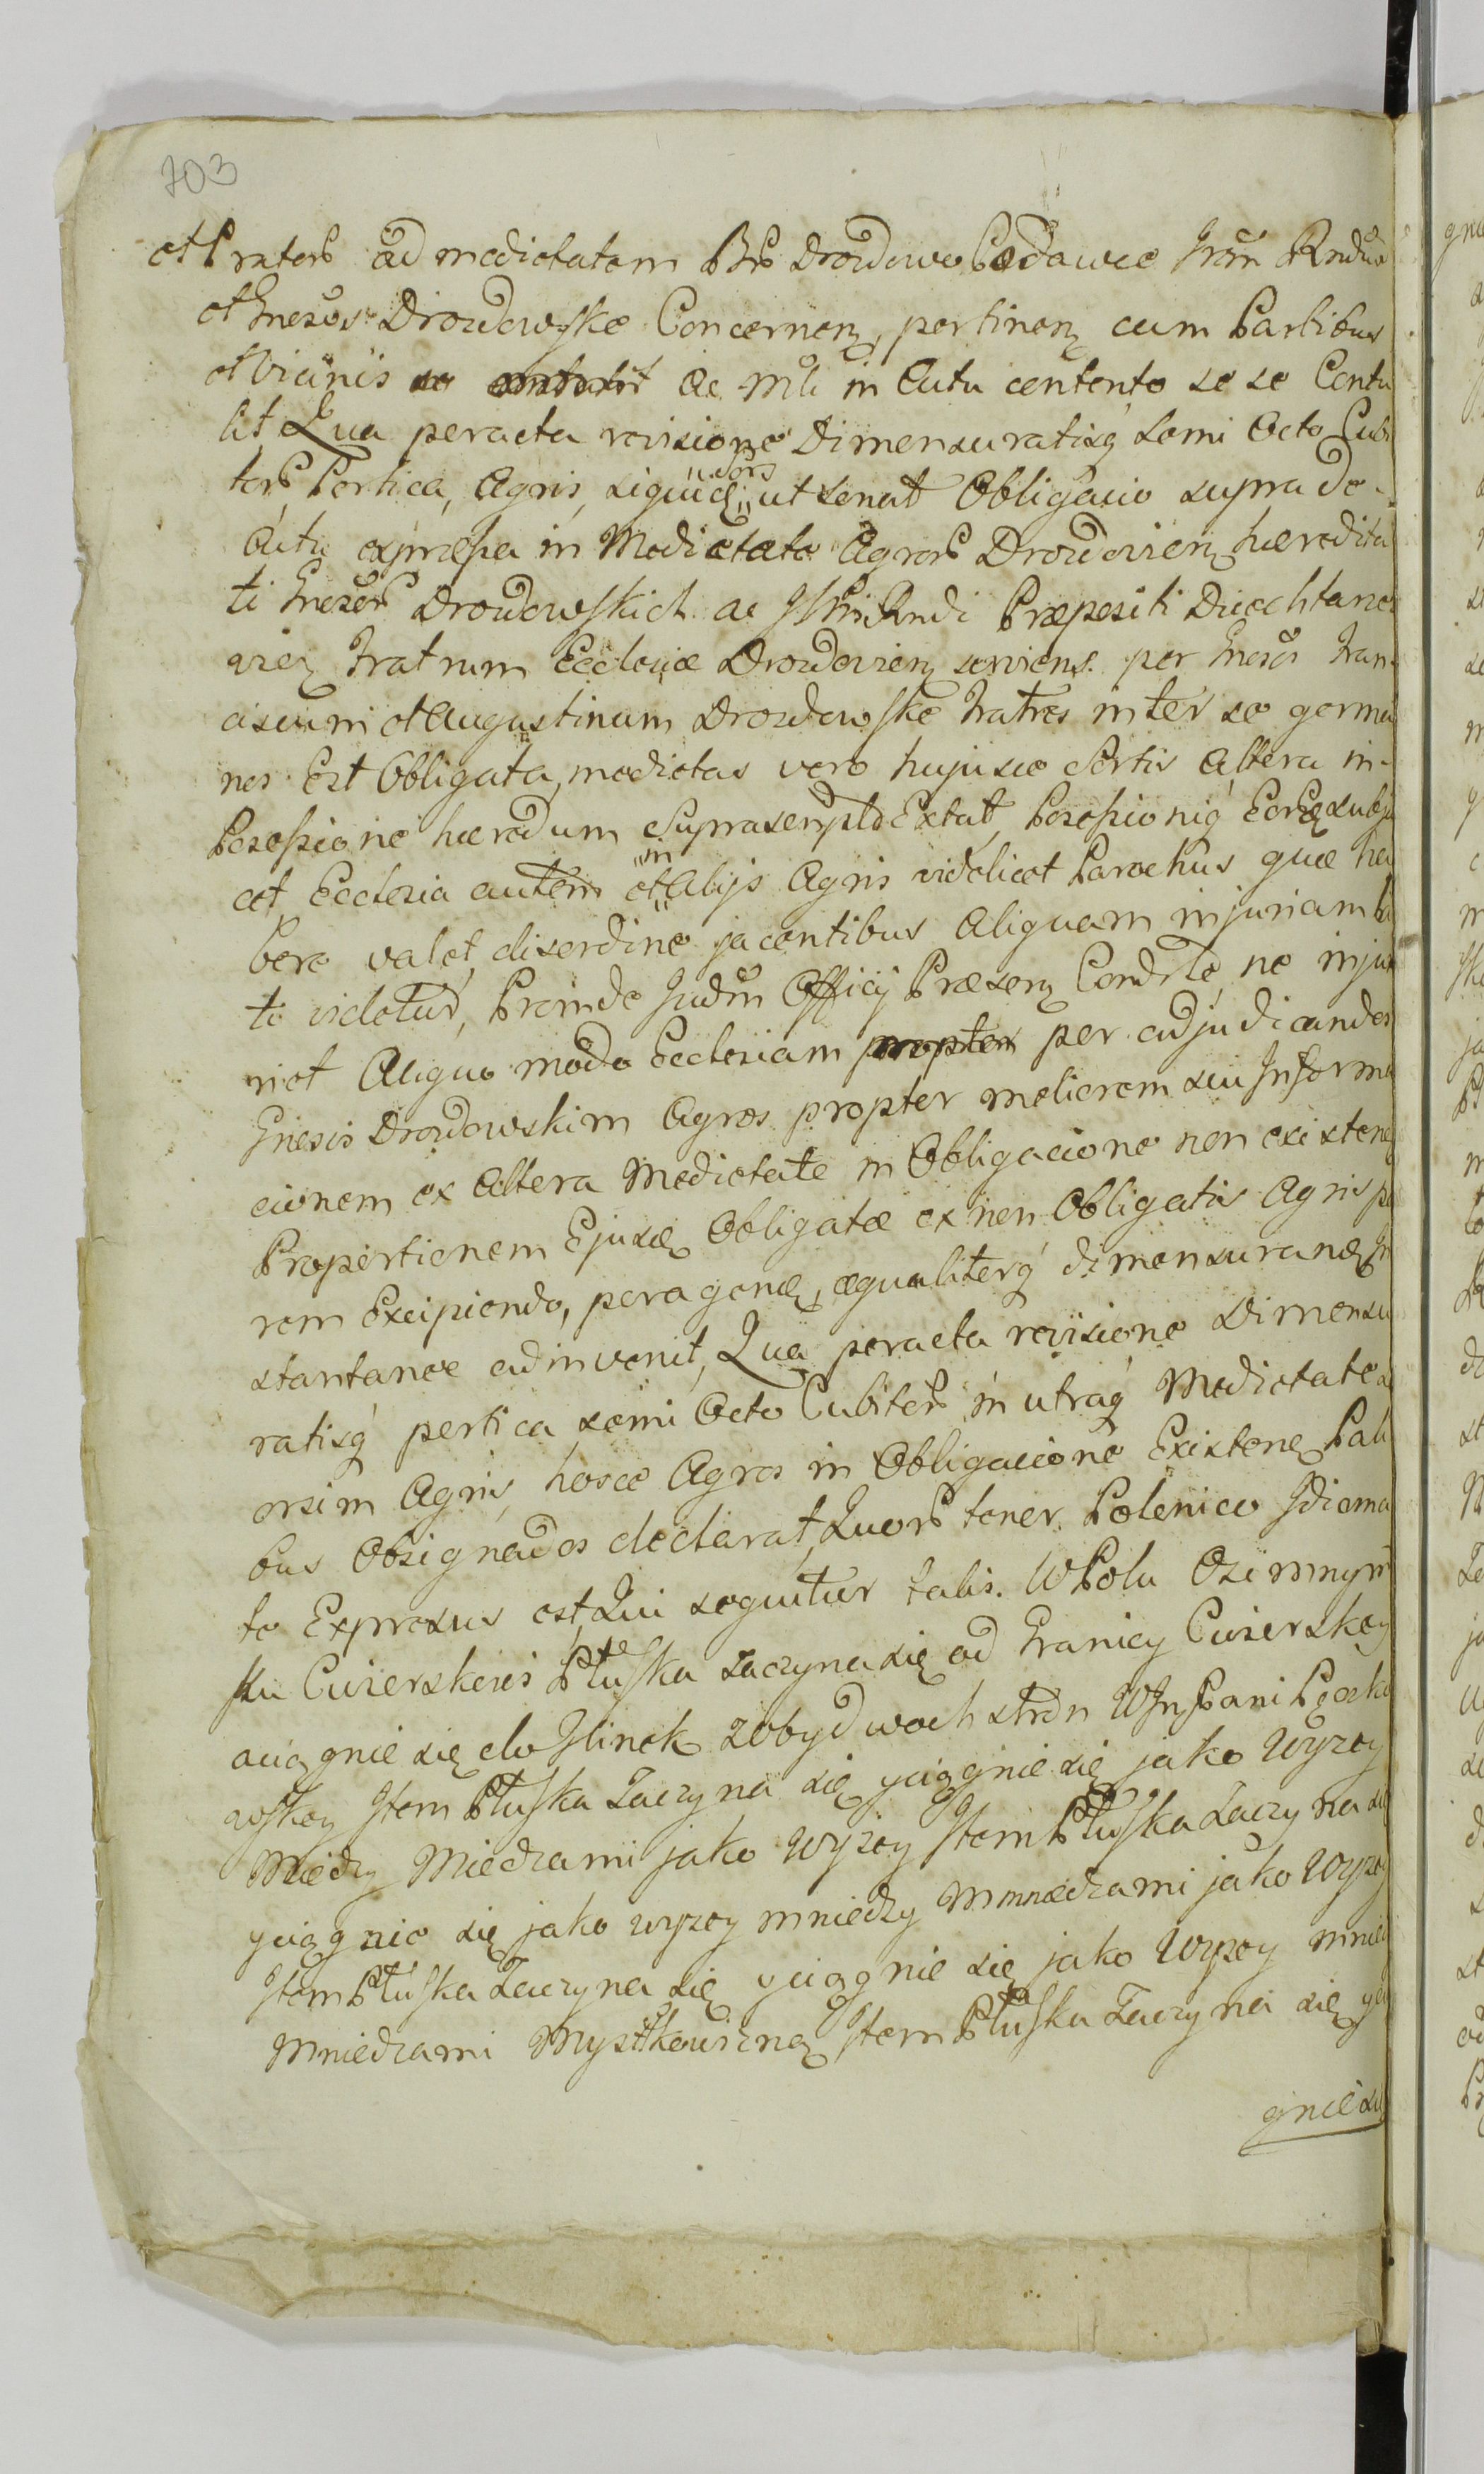 703
et Pratorb ad medietatem Brb Drozdowo Podawce Irom Rndum
et Gnesos Drozdowskie Concernen, pertinen cum Partibus
et Vicinis ac Mlti in Actu contento se se Contu
lit Qua peracta revisione Dimensuratisq Semi Octo Cubi
torb Pertica, Agris, siquid sors ut sonat Obligacio supra de
Actu expressa in Medietate Agrorb Drozdovien haeredita
ti Gnesorb Drozdowskich ac Rndi Praepositi
vien Fratrum Ecclesiae Drozdovien serviens. per Gnesos Fran
ciscum et Augustinum Drozdowskie Fratres inter se germa
nos Est Obligata, medietas vero hujusce Sortis Altera in
Possessione haeredum Suprascrpto Extat, Possessioniq Eorq subja
cet Ecclesia autem in et Alijs Agris videlicet Parochus quae ha
bere valet, disordine jacentibus Aliquam injuriam pa
ti videtur, Proinde Judm Officij Praesen Condescen, ne inju
riet Aliquo modo Ecclesiam propter per adjudicandos
Gnesis Drozdowskim Agros propter meliorem sui Informa
cionem ex Altera Medietate in Obligacione non existen
Proportionem Ejusq Obligatae ex non Obligatis Agris pa
rem Excipiendo, peragend, aequaliterq dimensurand In
stantanee adinvenit, Qua peracta revisione Dimensu
ratisq pertica semi Octo Cubitorb in utraq Medietate
orsim Agris, hosce Agros in Obligacione Existen Pali
bus Obsignandos declarat, Quorb tenor Polonico Idioma
te Expressus est, Qui sequitur talis. W Polu Ozimnym
ku Cwierskowi Płuska zaczyna się od Granicy Cwierskoy
aciągnie się do Glinek zobydwoch stron WJPani Pęczko
wskoy Item Płuska Zaczyna się yciągnie się jako Wyzey
Miedzy Miedzami jako Wyzey Item Płuska Zaczyna się
yciągnie się jako wyzey mniedzy Mmnedzami jako Wyzey
Item Płuska Zaczyna się yciągnie się jako Wyzey mnied
Mniedzami Myszkowizną Item Płuska Zaczyna się ycią
gnie się